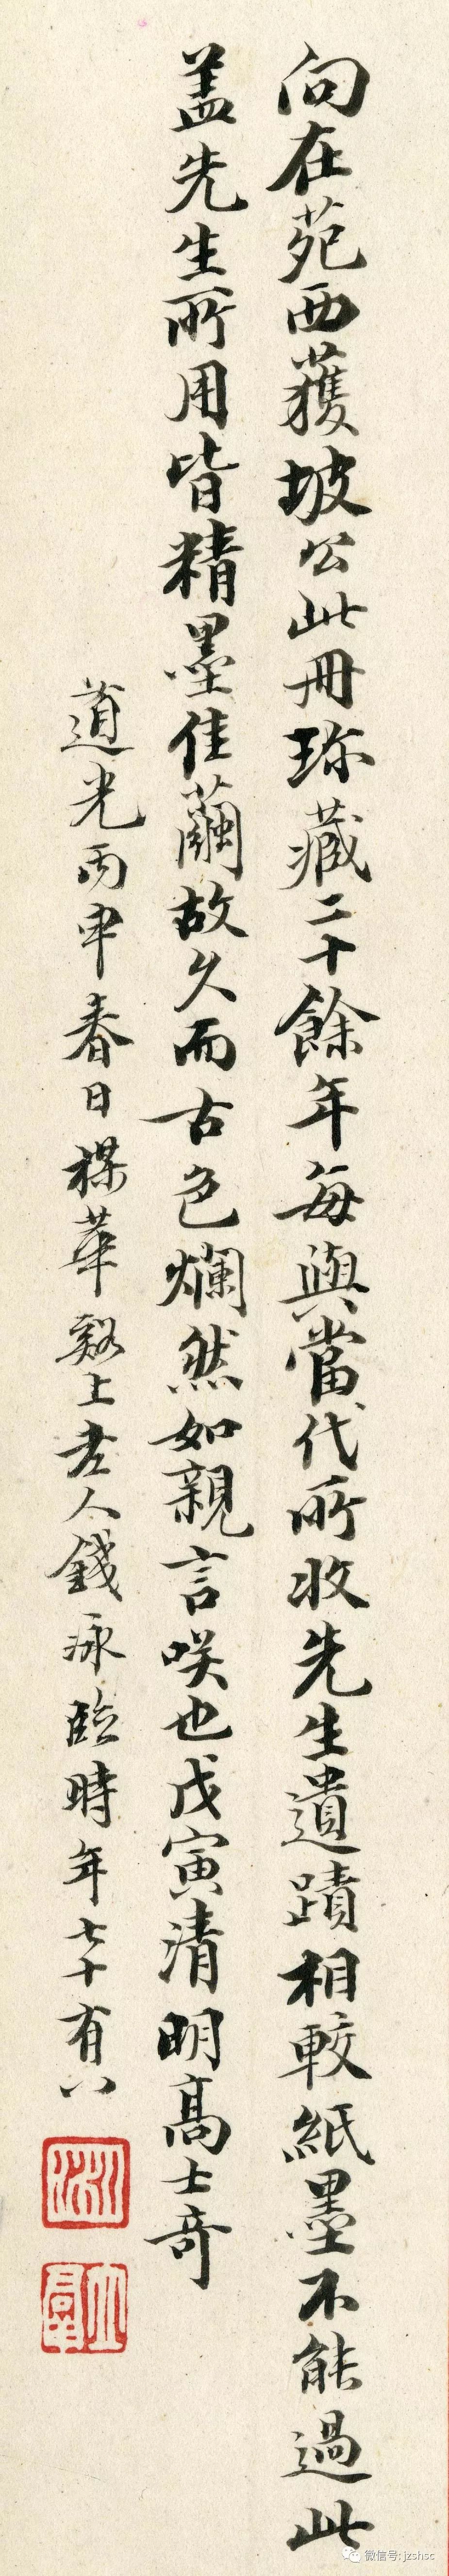 向在苑西獲坡公此冊珎藏二十餘年每與當代所收先生遺蹟相較紙墨不能過此
盖先生所用皆精墨佳繭故久而古色爛然如親言咲也戊寅清明高士奇
道光丙申春日楳華谿上老人錢泳臨時年七十有八
泳
立羣
微信号: jzshsc